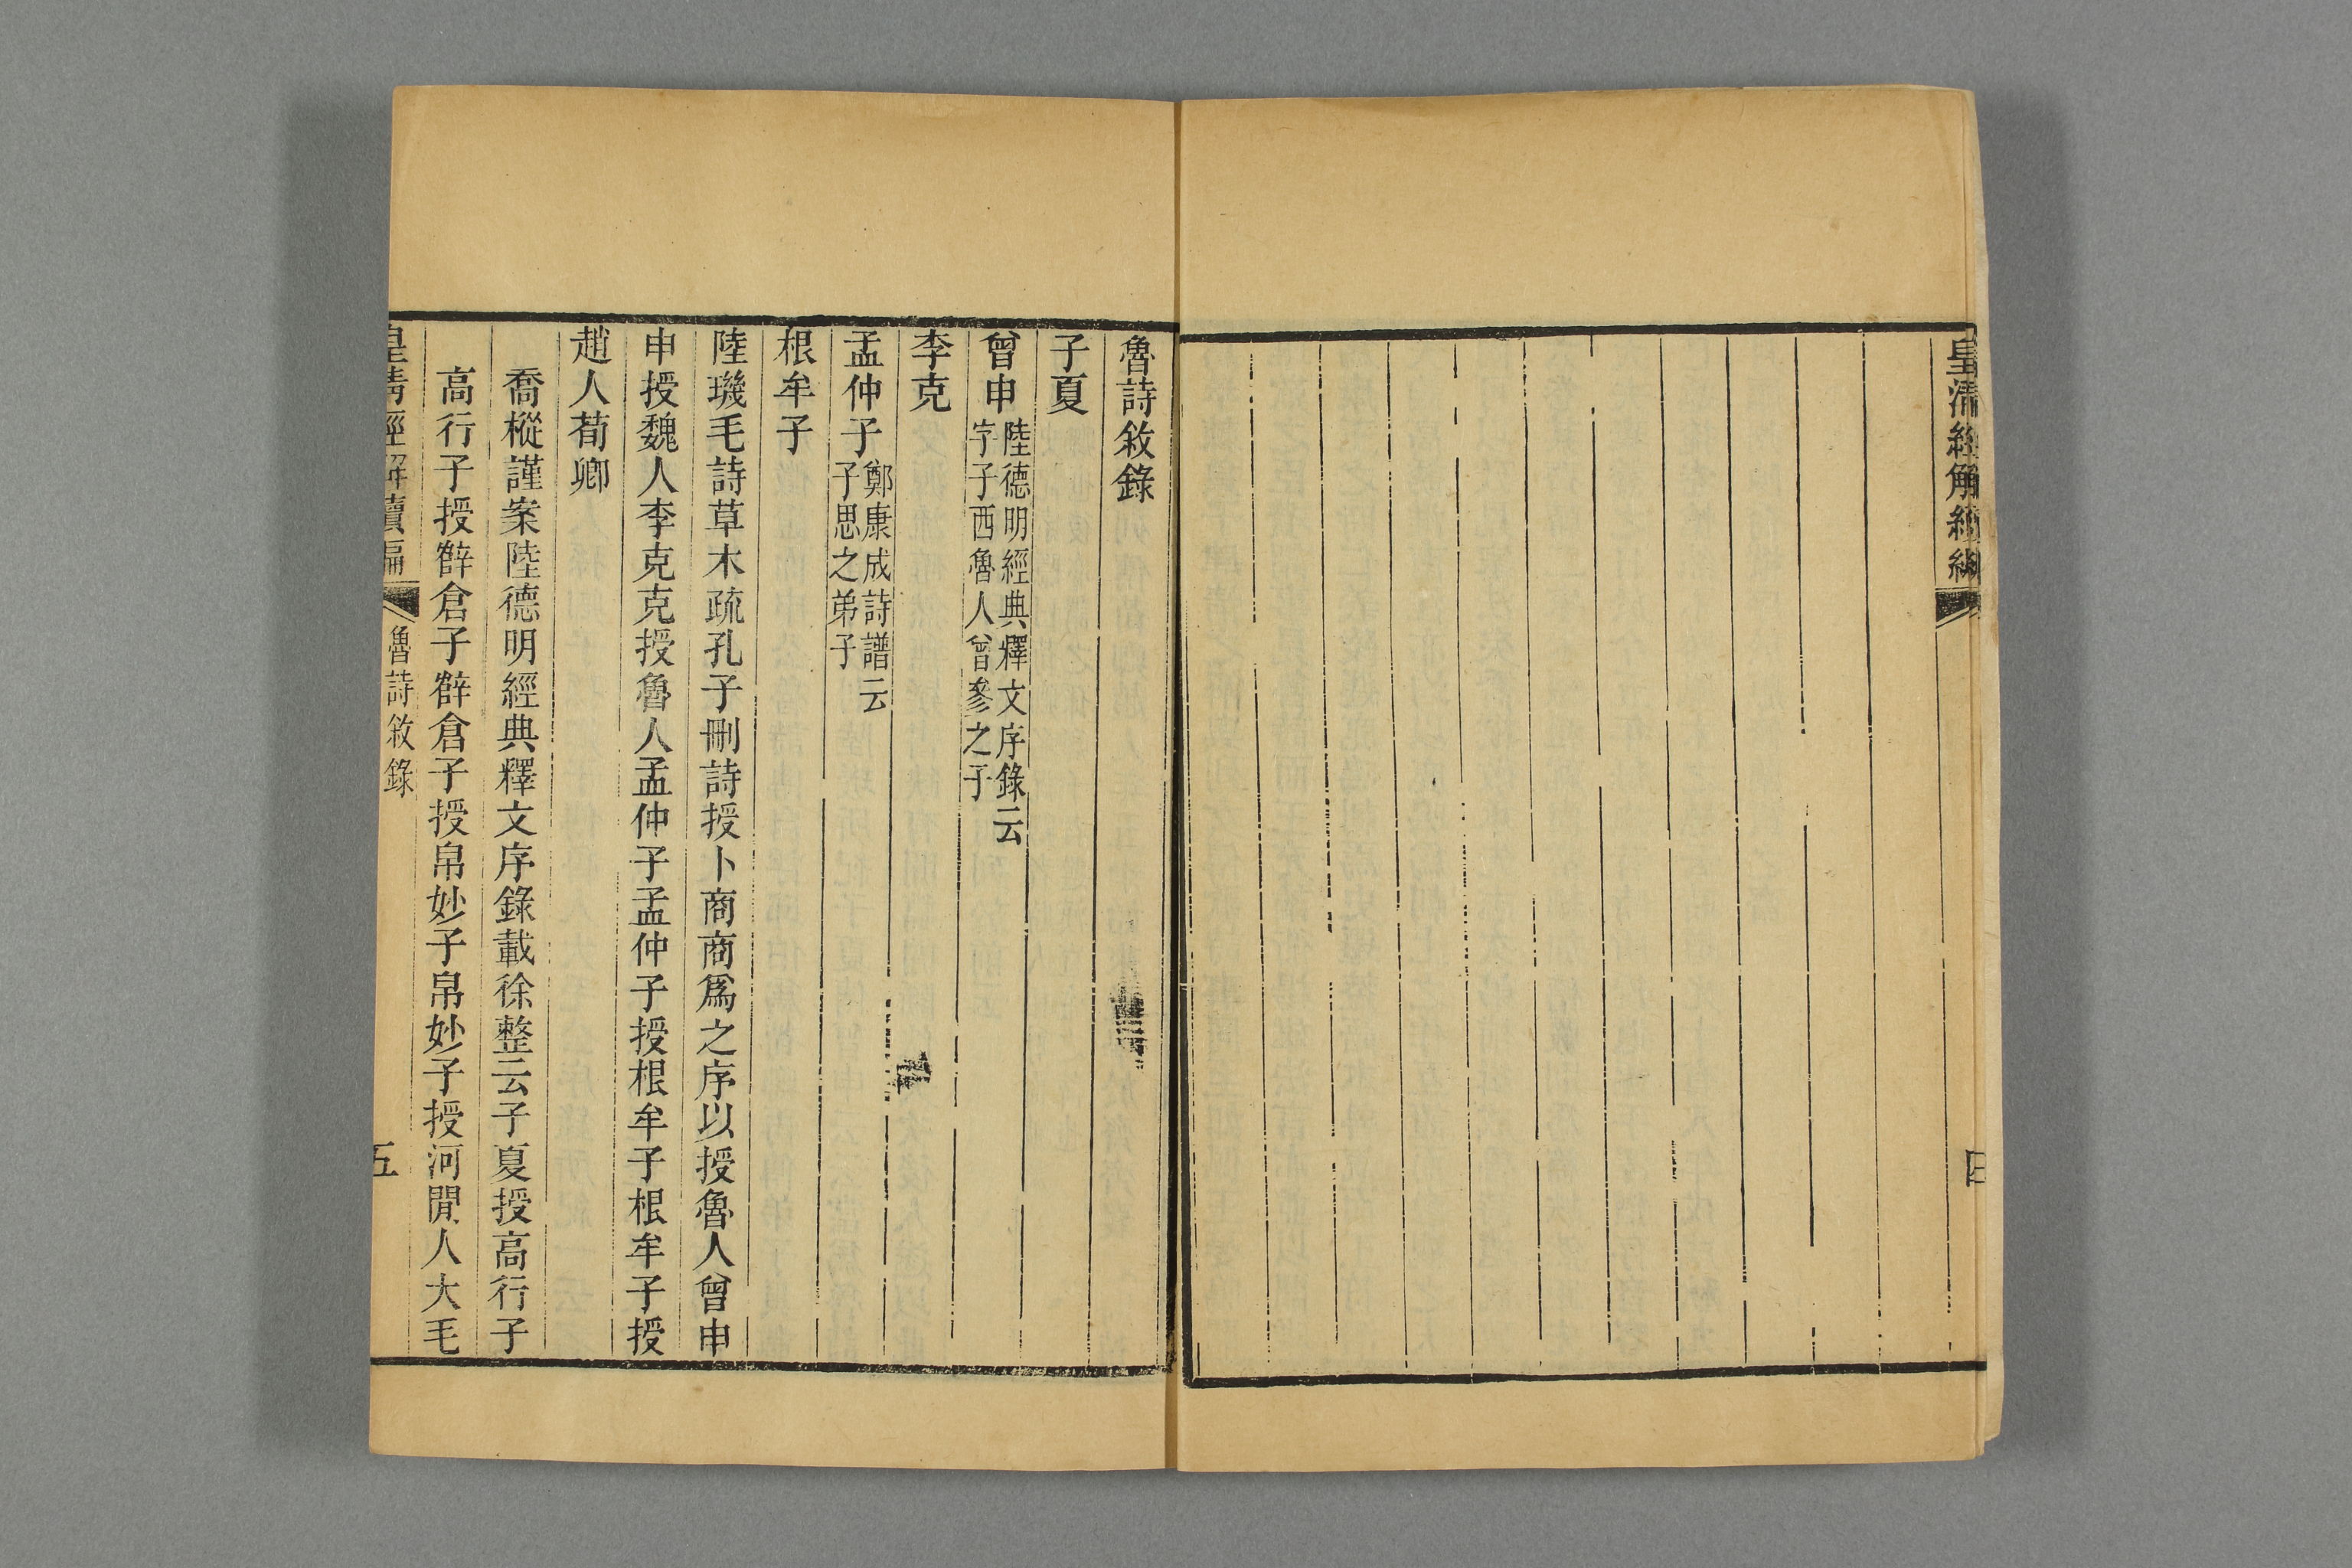 皇清經解續編
四
魯詩敘錄
子夏
曾申陸德明經典釋文序錄云
字子西魯人曾參之子
李克
孟仲子鄭康成詩譜云
子思之弟子
根牟子
陸璣毛詩草木疏孔子刪詩授卜商商爲之序以授魯人曾申
申授魏人李克克授魯人孟仲子孟仲子授根牟子根牟子授
趙人荀卿
喬樅謹案陸德明經典釋文序錄載徐整云子夏授高行子
高行子授薛倉子薛倉子授帛妙子帛妙子授河閒人大毛
皇清經解續編
魯詩敘錄
五